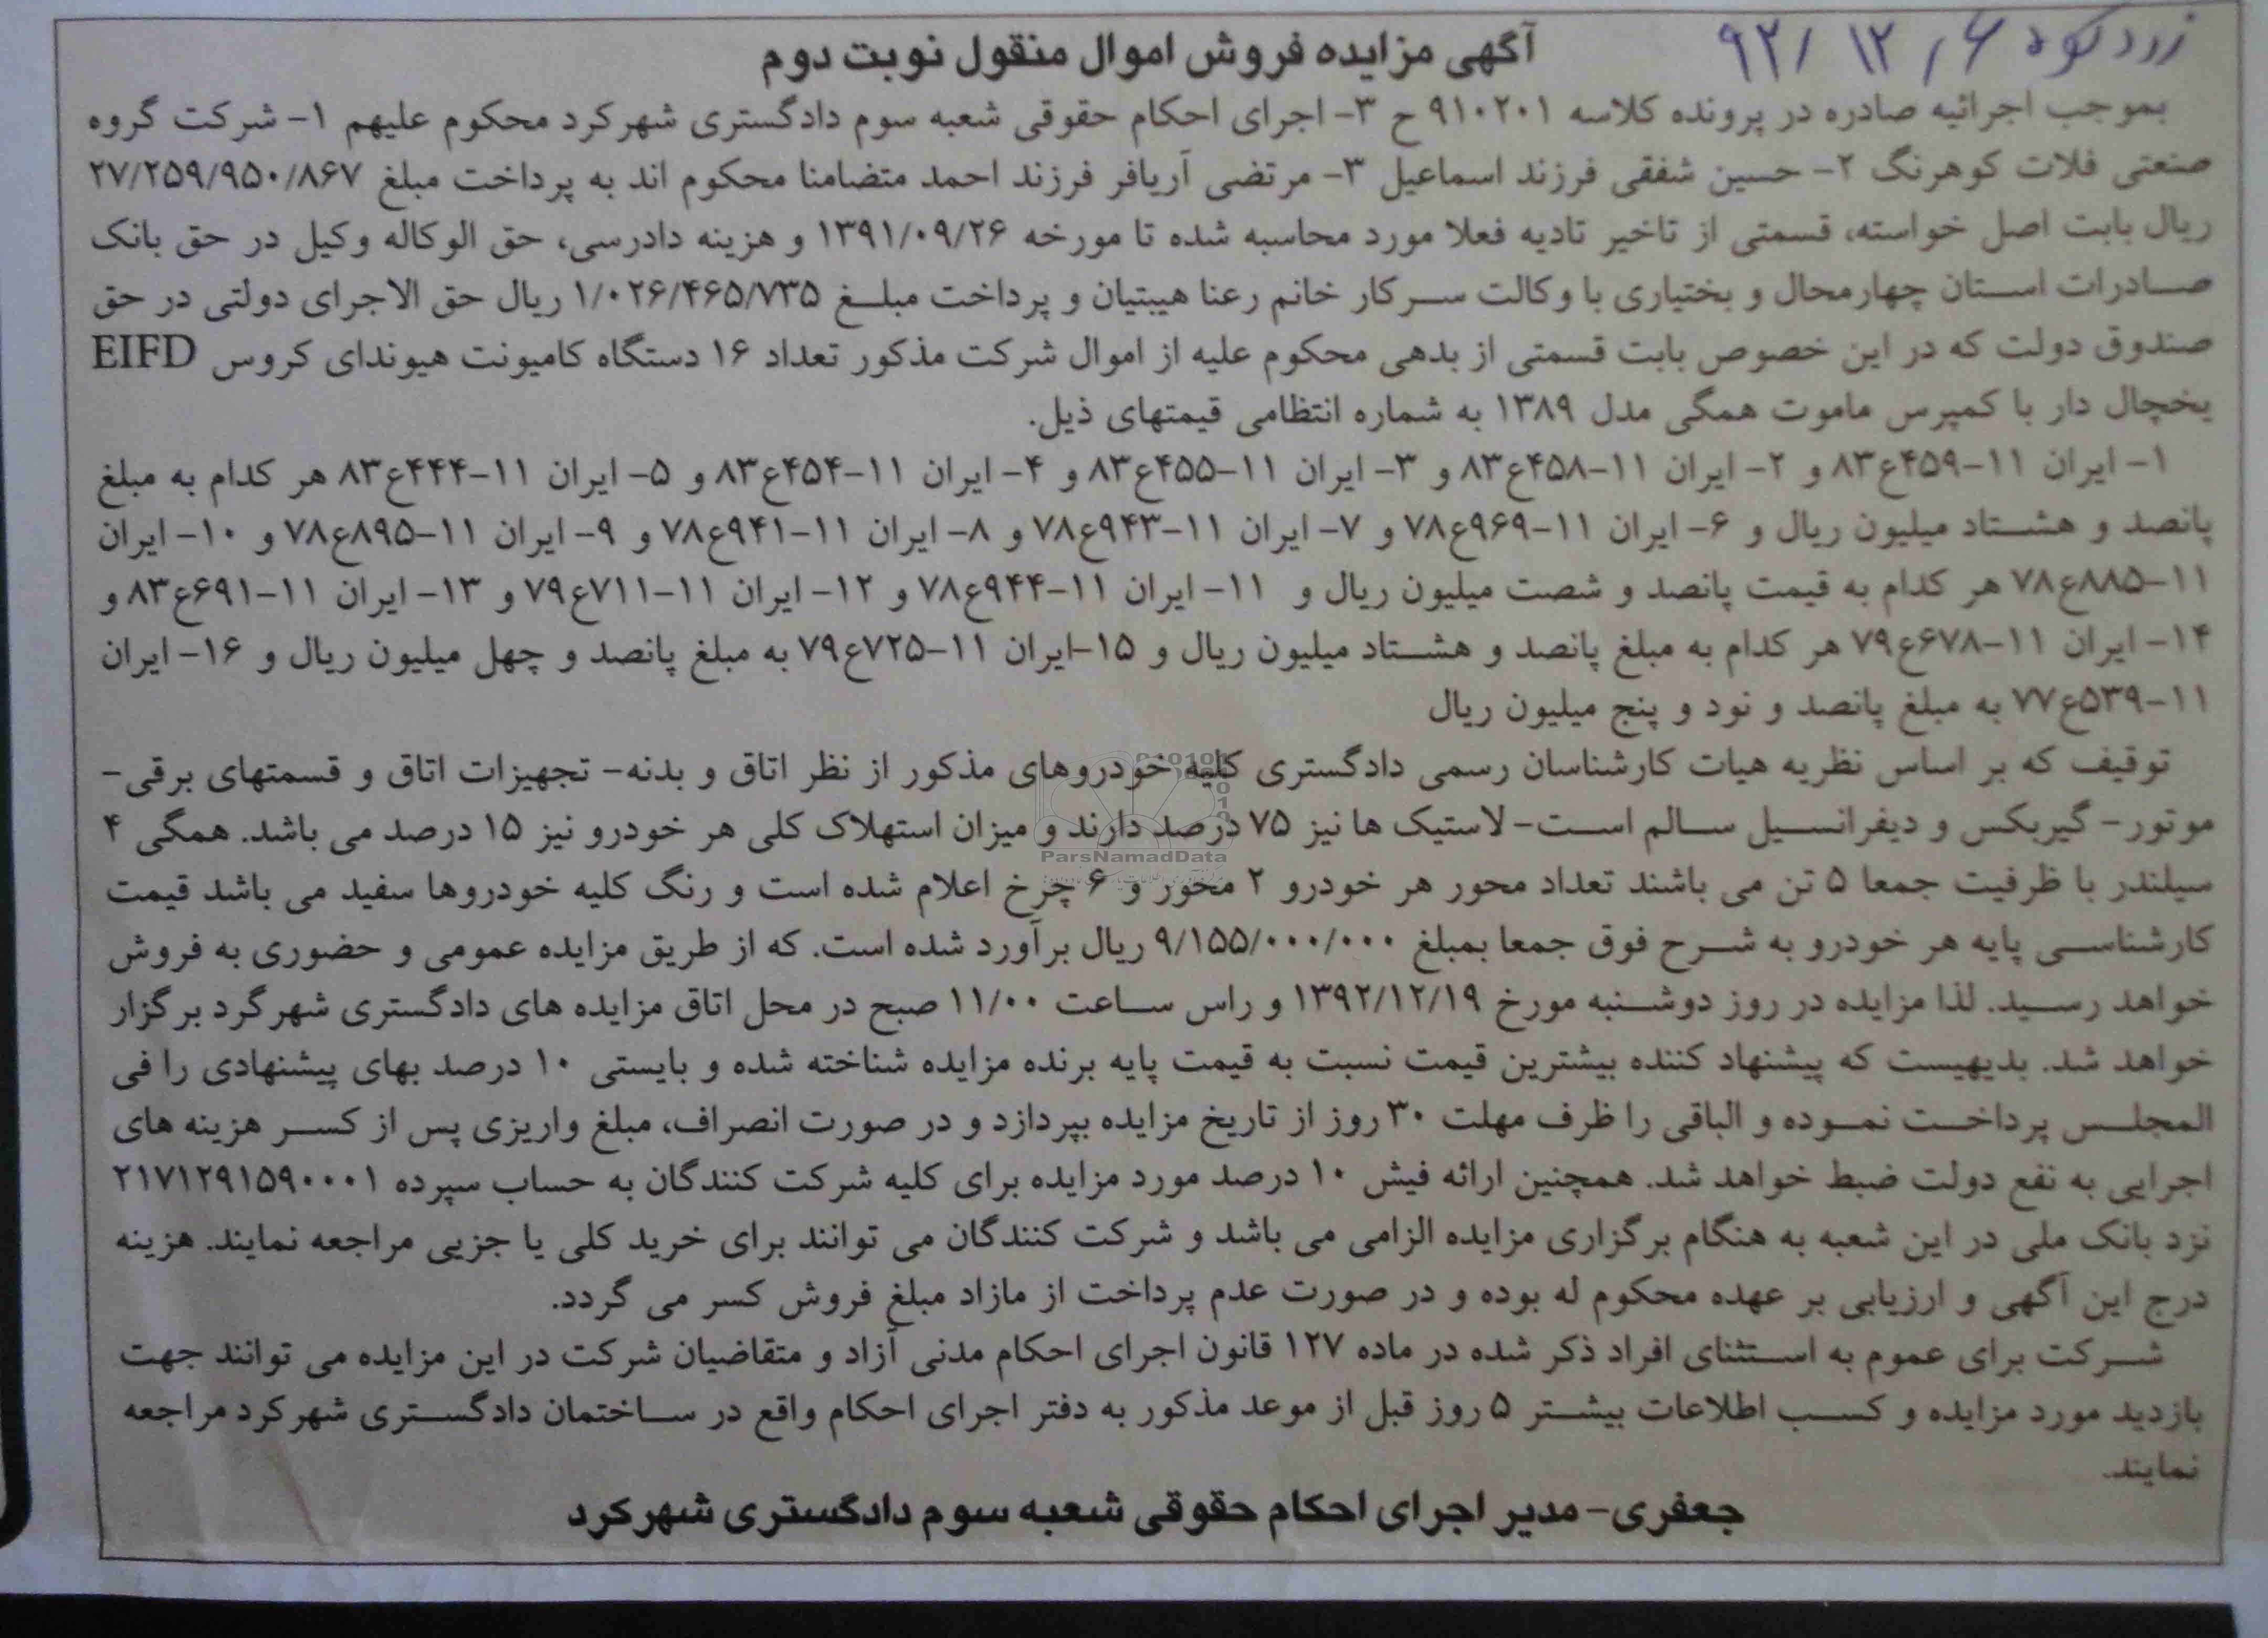 زردکوه ۹۲/۱۲/۶
آگهی مزایده فروش اموال منقول نوبت دوم
بموجب اجرائیه صادره در پرونده کلاسه ۹۱۰۲۰۱ ح ۳- اجرای احکام حقوقی شعبه سوم دادگستری شهرکرد محکوم علیهم ۱- شرکت گروه
صنعتی فلات کوهرنگ ۲- حسین شفقی فرزند اسماعیل ۳- مرتضی آریافر فرزند احمد متضامنا محکوم اند به پرداخت مبلغ ۲۷/۲۵۹/۹۵۰/۸۶۷
ریال بابت اصل خواسته، قسمتی از تاخیر تادیه فعلا مورد محاسبه شده تا مورخه ۱۳۹۱/۰۹/۲۶ و هزینه دادرسی، حق الوکاله وکیل در حق بانک
صادرات استان چهارمحال و بختیاری با وکالت سرکار خانم رعنا هیبتیان و پرداخت مبلغ ۱/۰۲۶/۴۶۵/۷۳۵ ریال حق الاجرای دولتی در حق
صندوق دولت که در این خصوص بابت قسمتی از بدهی محکوم علیه از اموال شرکت مذکور تعداد ۱۶ دستگاه کامیونت هیوندای کروس EIFD
یخچال دار با کمپرس ماموت همگی مدل ۱۳۸۹ به شماره انتظامی قیمتهای ذیل.
۱- ایران ۱۱-۴۵۹ع۸۳ و ۲- ایران ۱۱-۴۵۸ع۸۳ و ۳- ایران ۱۱-۴۵۵ع۸۳ و ۴- ایران ۱۱-۴۵۴ع۸۳ و ۵- ایران ۱۱-۴۴۴ع۸۳ هر کدام به مبلغ
پانصد و هشتاد میلیون ریال و ۶- ایران ۱۱-۹۶۹ع۷۸ و ۷- ایران ۱۱-۹۴۳ع۷۸ و ۸- ایران ۱۱-۹۴۱ع۷۸ و ۹- ایران ۱۱-۸۹۵ع۷۸ و ۱۰- ایران
۱۱-۸۸۵ع۷۸ هر کدام به قیمت پانصد و شصت میلیون ریال و ۱۱- ایران ۱۱-۹۴۴ع۷۸ و ۱۲- ایران ۱۱-۷۱۱ع۷۹ و ۱۳- ایران ۱۱-۶۹۱ع۸۳ و
۱۴- ایران ۱۱-۶۷۸ع۷۹ هر کدام به مبلغ پانصد و هشتاد میلیون ریال و ۱۵-ایران ۱۱-۷۲۵ع۷۹ به مبلغ پانصد و چهل میلیون ریال و ۱۶- ایران
۱۱-۵۳۹ع۷۷ به مبلغ پانصد و نود و پنج میلیون ریال
توقیف که بر اساس نظریه هیات کارشناسان رسمی دادگستری کلیه خودروهای مذکور از نظر اتاق و بدنه- تجهیزات اتاق و قسمتهای برقی-
موتور- گیربکس و دیفرانسیل سالم است- لاستیک ها نیز ۷۵ درصد دارند و میزان استهلاک کلی هر خودرو نیز ۱۵ درصد می باشد. همگی ۴
ParsNamadData
سیلندر با ظرفیت جمعا ۵ تن می باشند تعداد محور هر خودرو ۲ محور و ۶ چرخ اعلام شده است و رنگ کلیه خودروها سفید می باشد قیمت
کارشناسی پایه هر خودرو به شرح فوق جمعا بمبلغ ۹/۱۵۵/۰۰۰/۰۰۰ ریال برآورد شده است. که از طریق مزایده عمومی و حضوری به فروش
خواهد رسید. لذا مزایده در روز دوشنبه مورخ ۱۳۹۲/۱۲/۱۹ و راس ساعت ۱۱/۰۰ صبح در محل اتاق مزایده های دادگستری شهرگرد برگزار
خواهد شد. بدیهیست که پیشنهاد کننده بیشترین قیمت نسبت به قیمت پایه برنده مزایده شناخته شده و بایستی ۱۰ درصد بهای پیشنهادی را فی
المجلس پرداخت نموده و الباقی را ظرف مهلت ۳۰ روز از تاریخ مزایده بپردازد و در صورت انصراف، مبلغ واریزی پس از کسر هزینه های
اجرایی به نفع دولت ضبط خواهد شد. همچنین ارائه فیش ۱۰ درصد مورد مزایده برای کلیه شرکت کنندگان به حساب سپرده ۲۱۷۱۲۹۱۵۹۰۰۰۱
نزد بانک ملی در این شعبه به هنگام برگزاری مزایده الزامی می باشد و شرکت کنندگان می توانند برای خرید کلی یا جزیی مراجعه نمایند. هزینه
درج این آگهی و ارزیابی بر عهده محکوم له بوده و در صورت عدم پرداخت از مازاد مبلغ فروش کسر می گردد.
شرکت برای عموم به استثنای افراد ذکر شده در ماده ۱۲۷ قانون اجرای احکام مدنی آزاد و متقاضیان شرکت در این مزایده می توانند جهت
بازدید مورد مزایده و کسب اطلاعات بیشتر ۵ روز قبل از موعد مذکور به دفتر اجرای احکام واقع در ساختمان دادگستری شهرکرد مراجعه
نمایند.
جعفری- مدیر اجرای احکام حقوقی شعبه سوم دادگستری شهرکرد